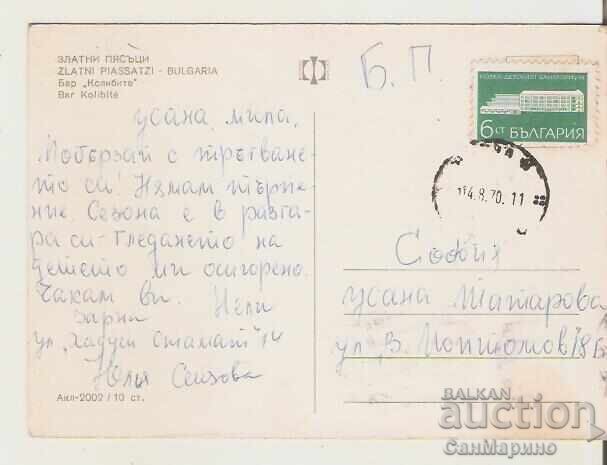 ЗЛАТНИ ПЯСЪЦИ
ZLATNI PIASSATZI - BULGARIA
Бар „Колибите"
Bar Kolibite
Б. П.
КОЗЛОДУЙСКИ САНАТОРИУМ
6 СТ БЪЛГАРИЯ
14.8.70. 11
усана, мила,
Побързай с тръгване-
то си! Нямам търпе-
ние. Сезона е в разга-
ра си. Гледането на
детето ми осигорено.
Чакам ви. Нели
Варна
ул. „Хаджи Стамат" 14
Юлия
София
усана Татарова
ул „В.
Акл-2002 / 10 ст.
BALKAN
auction
СанМарино